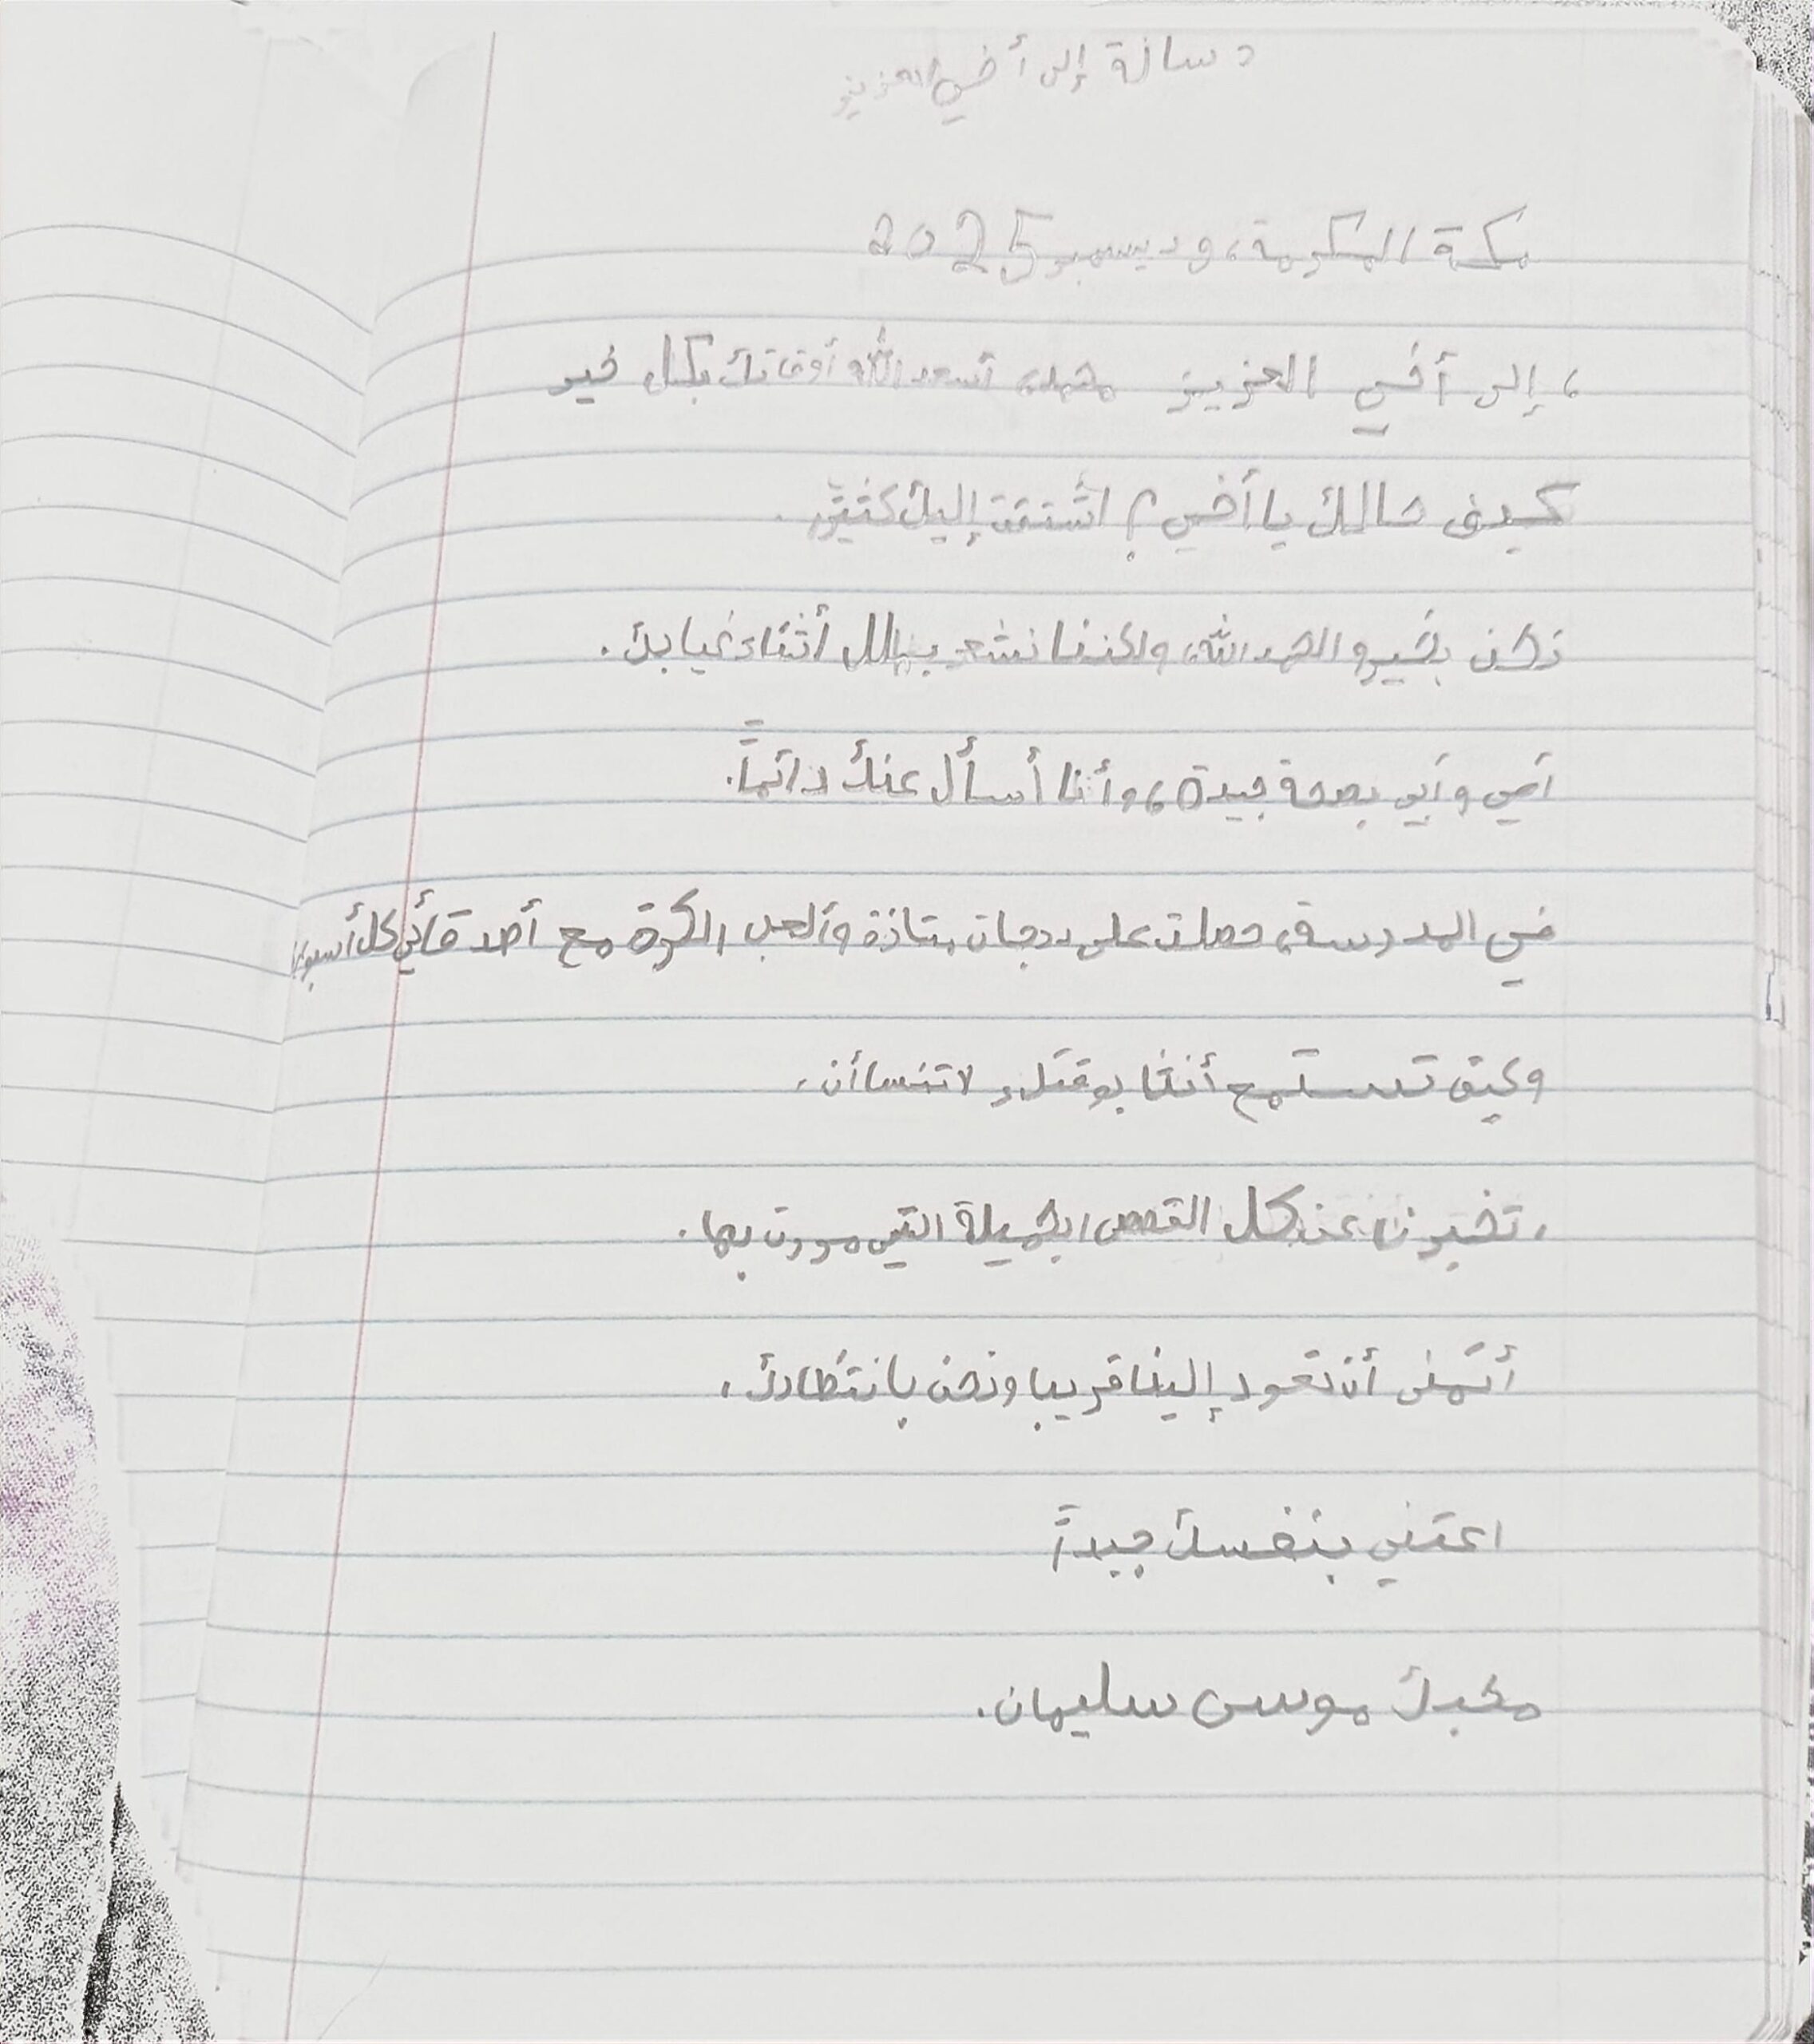 رسالة إلى أخي العزيز
مكة المكرمة، 9 ديسمبر 2025
، إلى أخي العزيز محمد، أسعد الله أوقاتك بكل خير
كيف حالك يا أخي؟ اشتقت إليك كثيرًا.
نحن بخير والحمد الله، ولكننا نشعر بملل أثناء غيابك.
أمي وأبي بصحة جيدة، وأنا أسأل عنك دائماً.
في المدرسة، حصلت على درجات ممتازة وألعب الكرة مع أصدقائي كل أسبوع
وكيف تستمتع أنت بوقتك، لا تنسا أن،
، تخبرنا عن كل القصص الجميلة التي مررت بها.
أتمنى أن تعود إلينا قريبا ونحن بانتظارك،
اعتني بنفسك جيداً
محبك موسى سليمان.